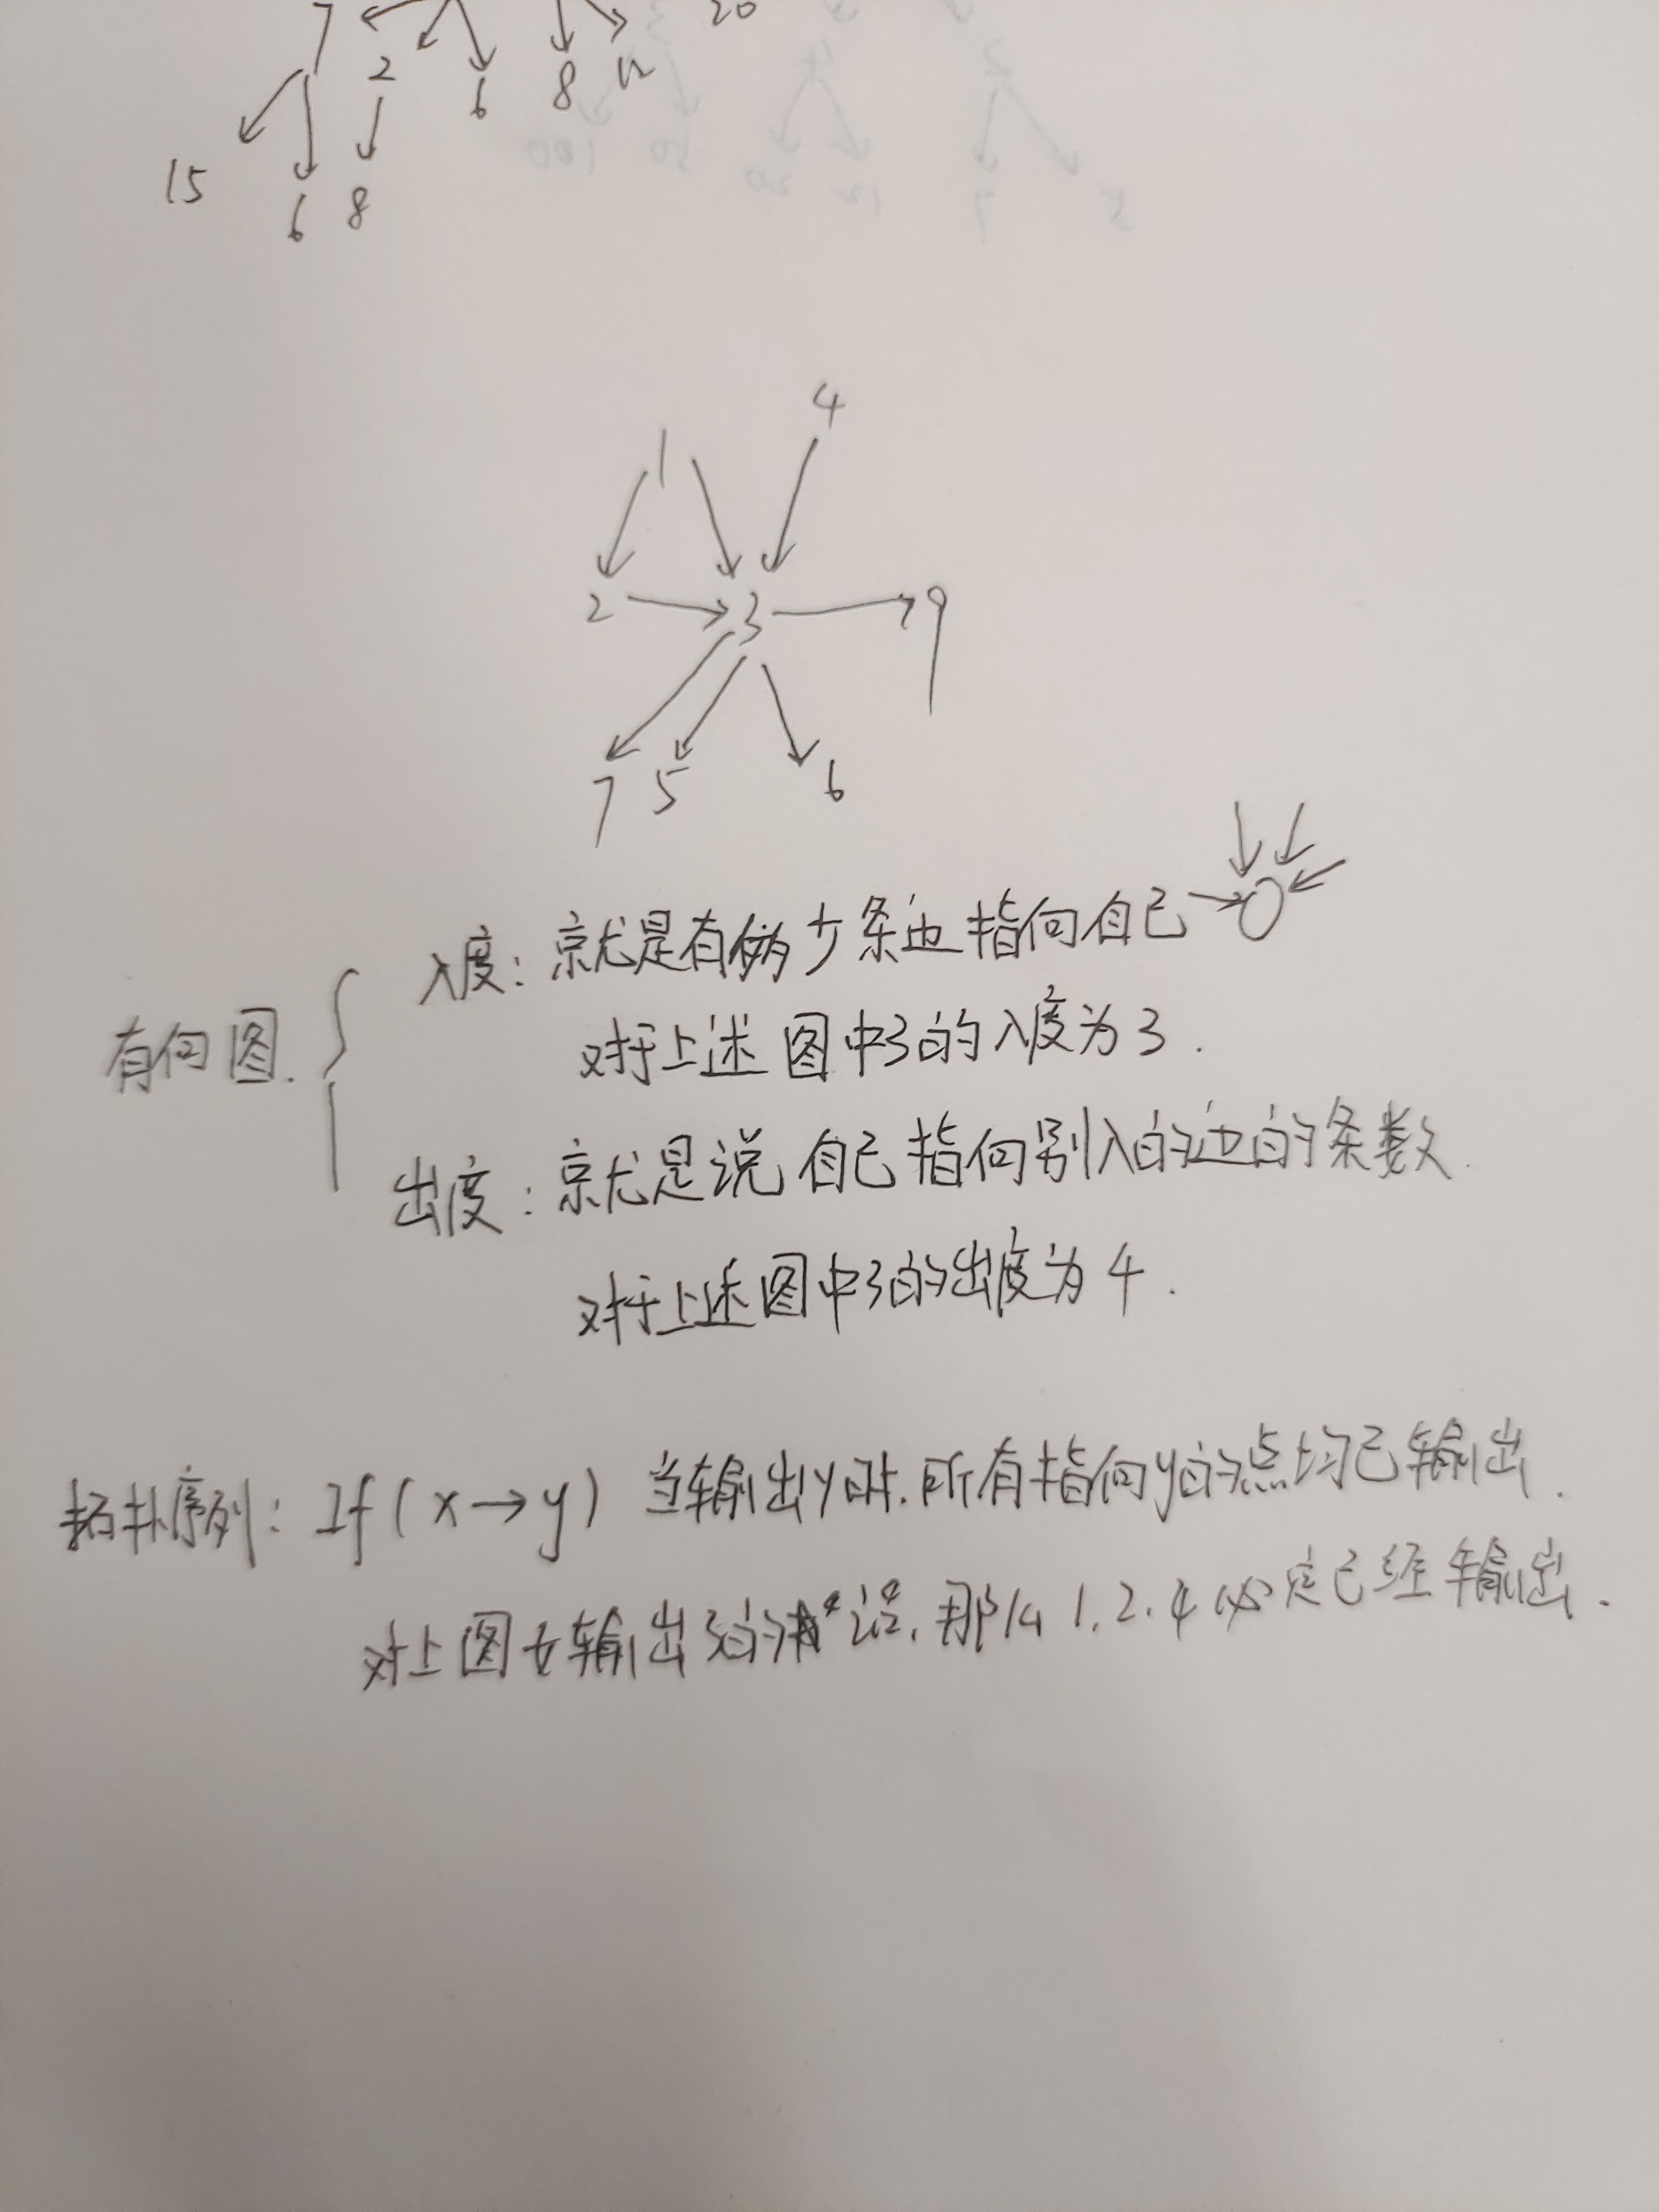 7 2 6 8 12 20
15 6 8
4
1
2 3 9
7 5 6
入度：就是有多少条边指向自己
有向图.
对于上述图中3的入度为3.
出度：就是说自己指向别人的边的条数.
对于上述图中3的出度为4.
拓扑序列：If(x→y) 当输出y时.所有指向y的点均已输出.
对上图 输出3的话,那么1.2.4必定已经输出.